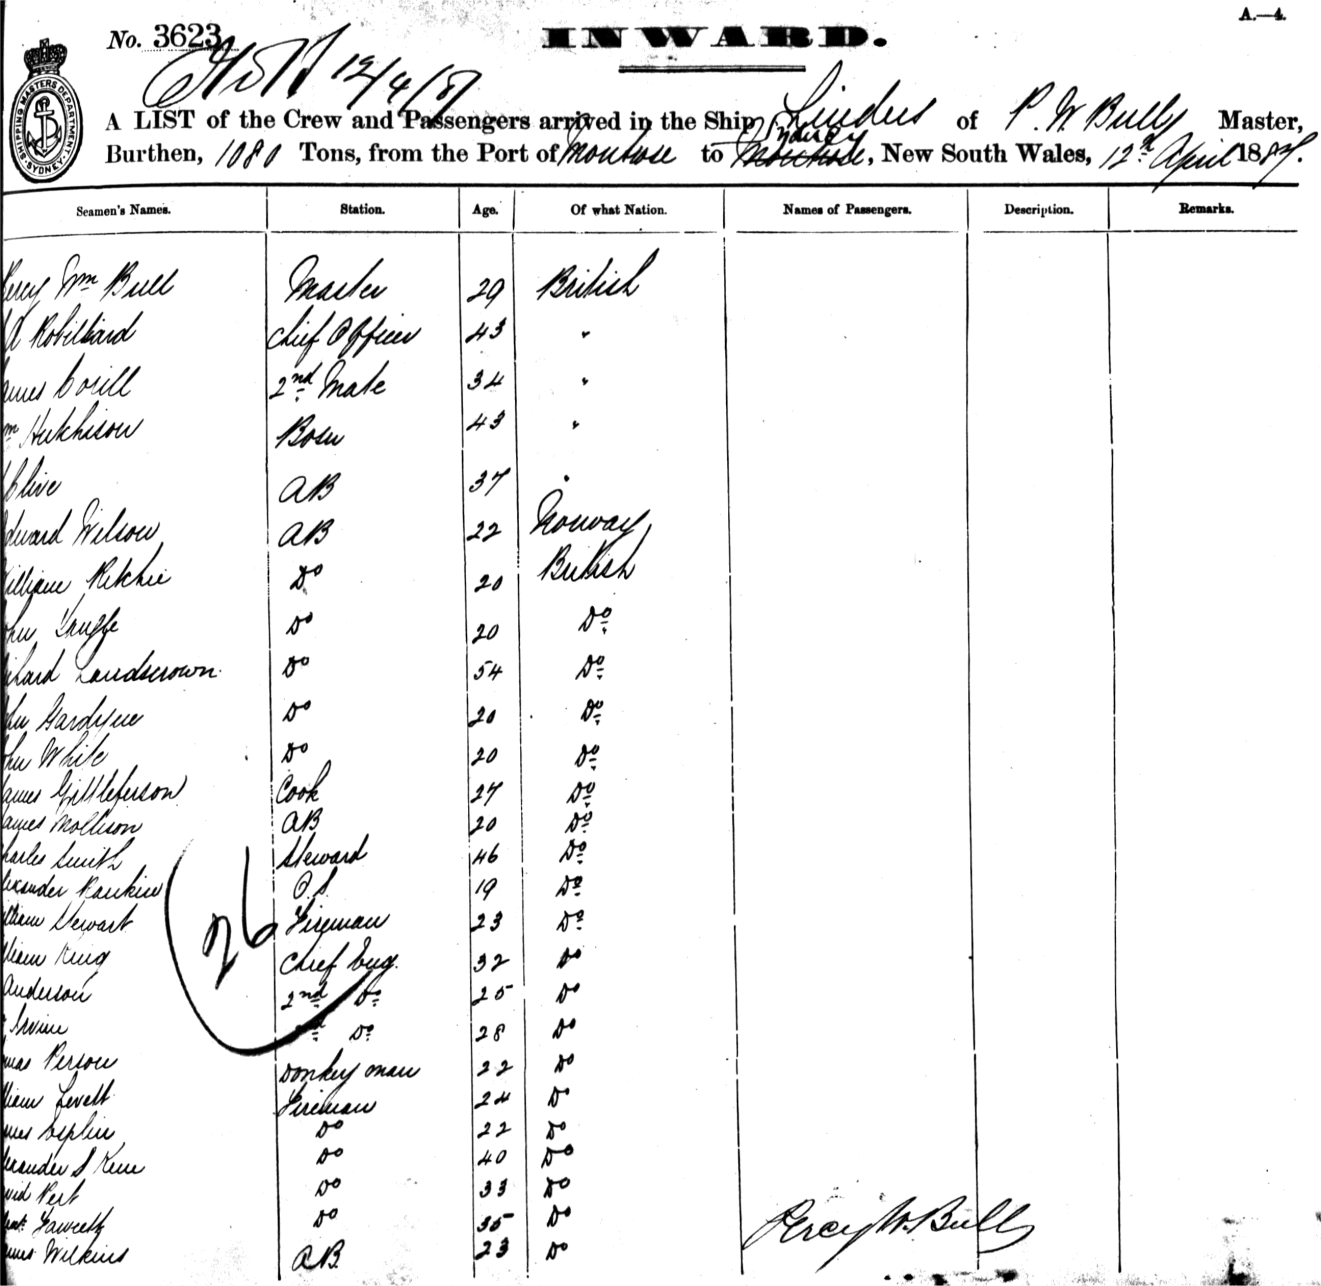 A.—4.
No. 3623
INWARD.
12/4/87
SHIPPING MASTERS DEPARTMENT SYDNEY
A LIST of the Crew and Passengers arrived in the Ship Linders of P. W. Bull, Master,
Sydney
Burthen, 1080 Tons, from the Port of Montrose to Montrose, New South Wales, 12th April 1887.
Seamen's Names. Station. Age. Of what Nation. Names of Passengers. Description. Remarks.
Percy Wm Bull Master 29 British
A Robilliard Chief Officer 43 "
James 34 2nd Mate "
Wm Hutchison Bosn 43 "
Clive AB 37 "
Edward Wilson AB 22 Norway
William Ritchie Do 20 British
John Do 20 Do
Richard Landscrown Do 54 Do
John Gardyne Do 20 Do
John White Do 20 Do
James Cook 27 Do
James Mollison AB 20 Do
Charles Smith Steward 46 Do
Alexander Rankin O.S 19 Do
William Stewart Fireman 23 Do
26
William King Chief Eng. 32 Do
Anderson 2nd Do 25 Do
Irvine Do 28 Do
Person Donkey man 22 Do
William Levett Fireman 24 Do
James Esplin Do 22 Do
Alexander S Kene Do 40 Do
David Pert Do 33 Do
Fawcett Do 35 Do
James Wilkins A.B. 23 Do
Percy W. Bull